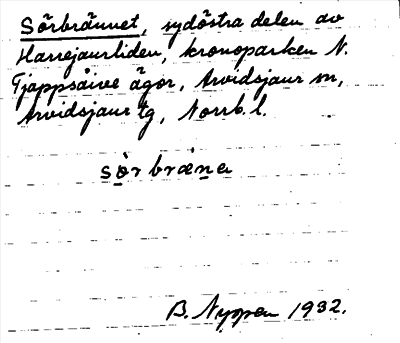 Sörbrännet, sydöstra delen av
Harrejaurliden, kronoparken N.
Tjappsåive ägor, Arvidsjaur sn,
Arvidsjaur tg, Norrb. l.
sörbræna
B. Nyppen 1932.